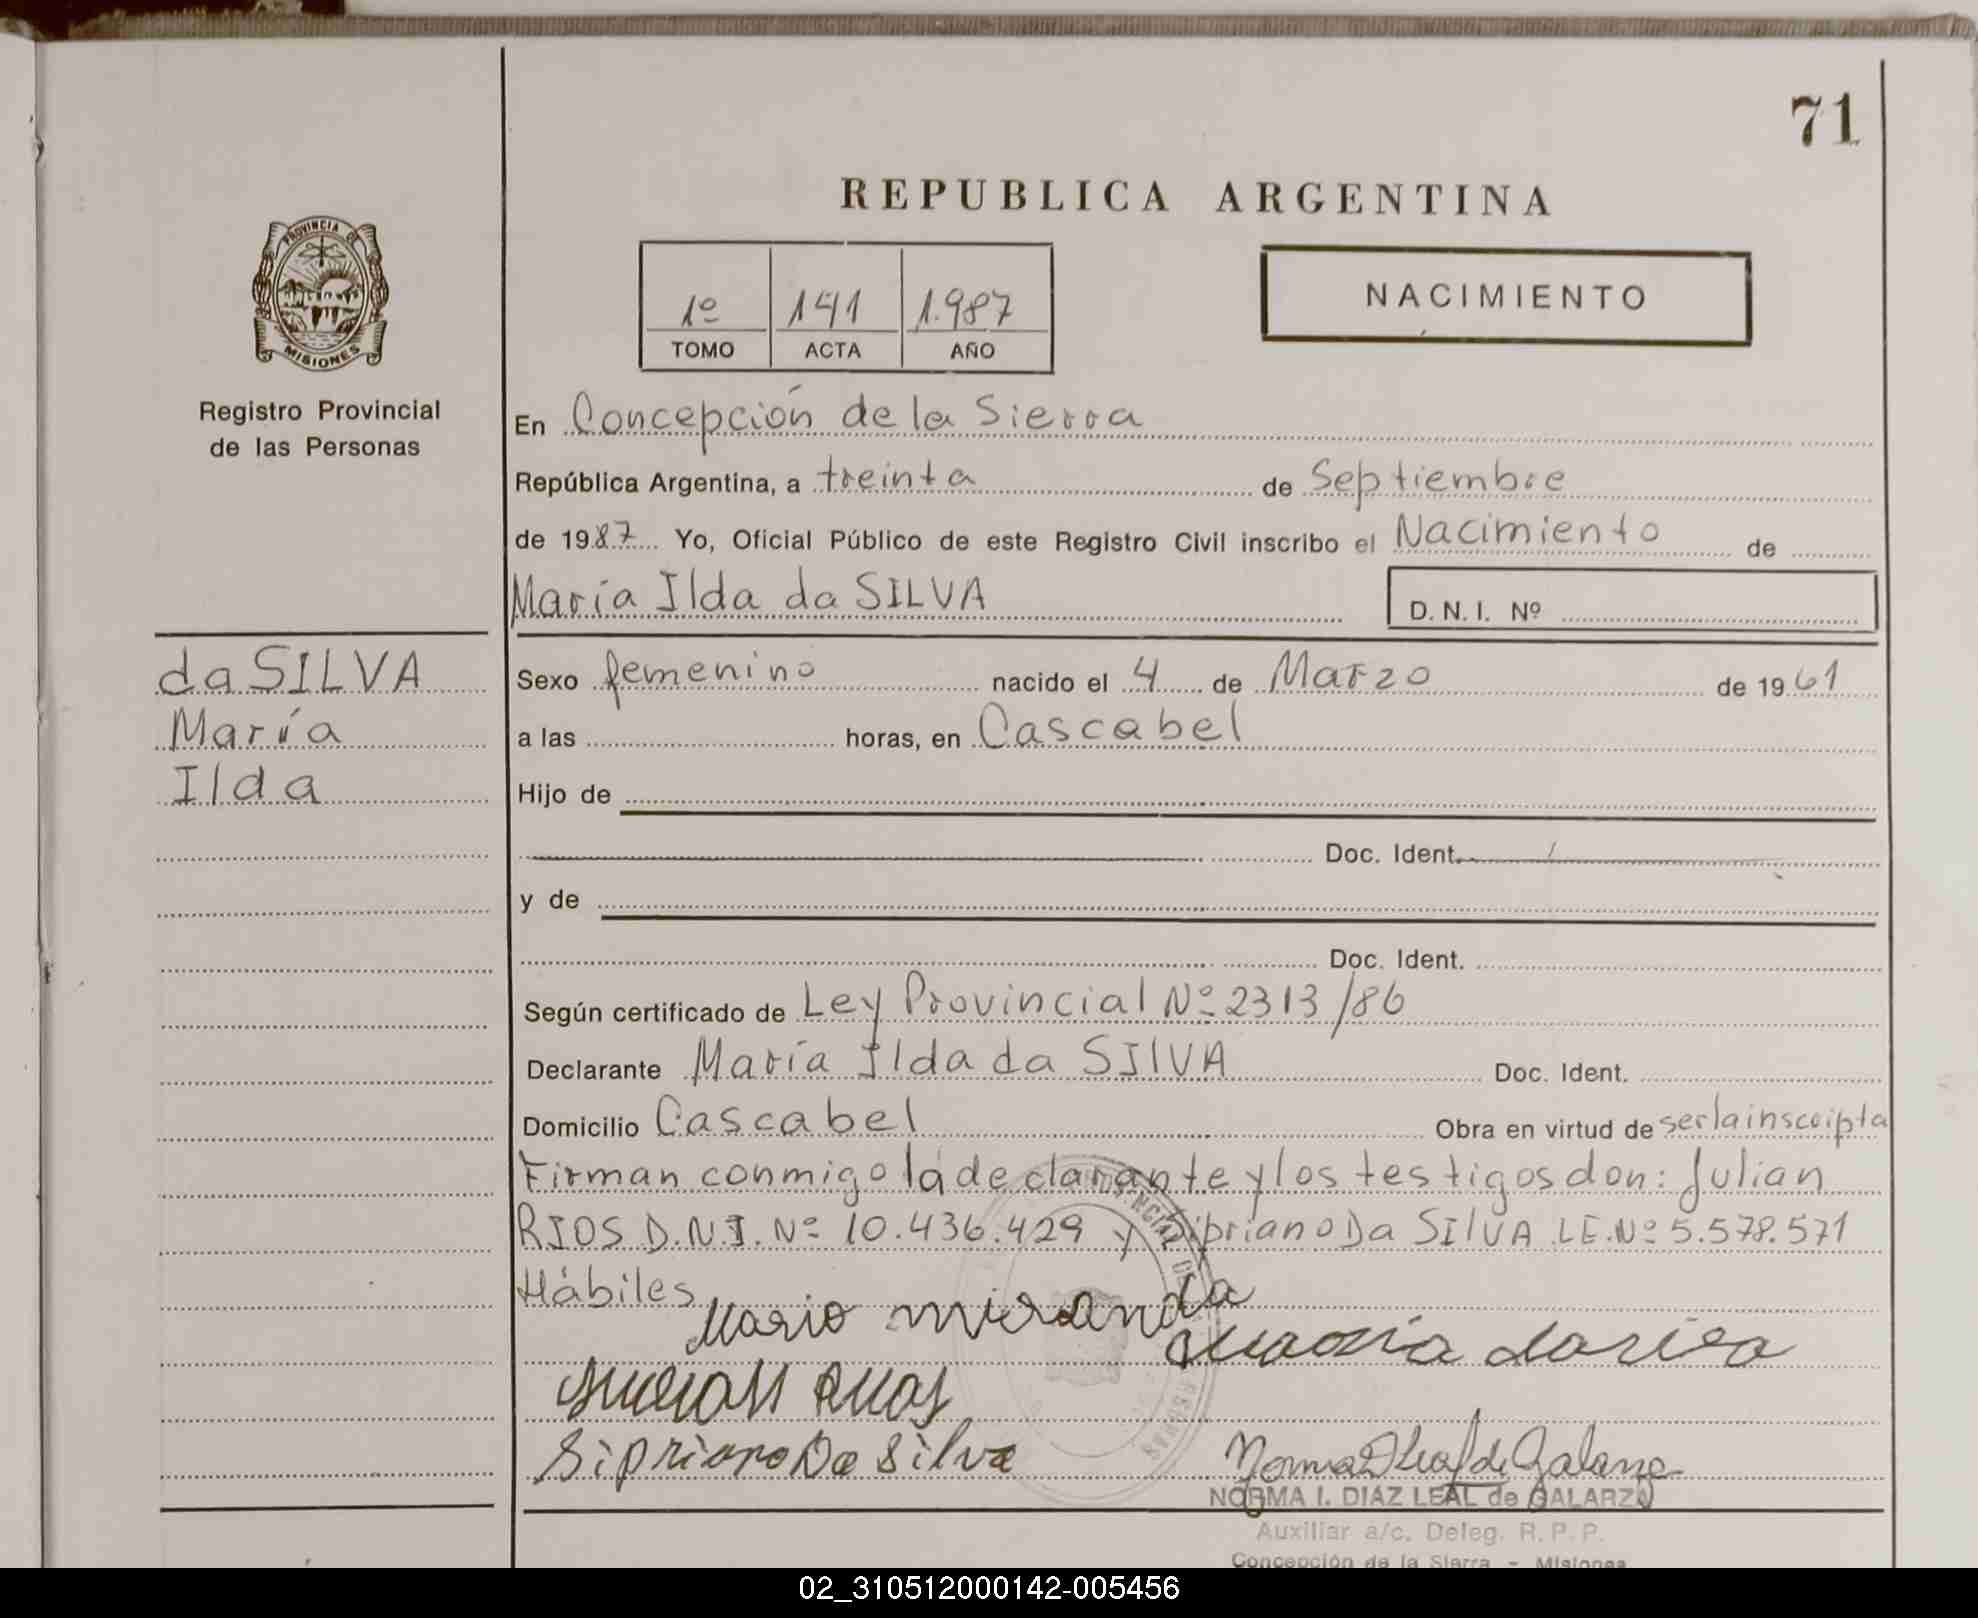 71
REPUBLICA ARGENTINA
PROVINCIA DE
MISIONES
Registro Provincial
de las Personas
1º 141 1.987
TOMO ACTA AÑO
NACIMIENTO
En Concepción de la Sierra
República Argentina, a treinta de Septiembre
de 1987 Yo, Oficial Público de este Registro Civil inscribo el Nacimiento de
María Ilda da SILVA D. N. I. Nº
da SILVA
María
Ilda
Sexo femenino nacido el 4 de Marzo de 1961
a las horas, en Cascabel
Hijo de
Doc. Ident.
y de
Doc. Ident.
Según certificado de Ley Provincial Nº 2313/86
Declarante María Ilda da SILVA Doc. Ident.
Domicilio Cascabel Obra en virtud de ser la inscripta
Firman conmigo la declarante y los testigos don: Julian
RIOS D.N.I. Nº 10.436.429 y Cipriano Da SILVA L.E. Nº 5.578.571
Hábiles
Mario miranda
Sipriano Da Silva
NORMA I. DIAZ LEAL de GALARZA
Auxiliar a/c. Deleg. R. P. P.
Concepción de la Sierra - Misiones
02_310512000142-005456